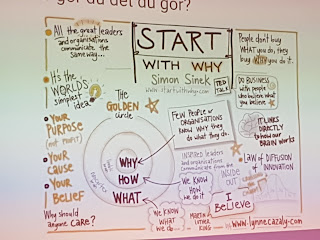 gör du det du gör?
All the great leaders
and organisations
communicate the
same way...
START
WITH WHY
Simon Sinek
www.startwithwhy.com
TED
TALK
People don't buy
WHAT you do, they
buy WHY you do it.
It's the
WORLD'S
simplest
idea
The
GOLDEN
circle
DO BUSINESS
with people
who believe what
you believe
FEW PEOPLE or
ORGANISATIONS
KNOW WHY they
do what they do.
IT LINKS
DIRECTLY
to how our
BRAIN works
YOUR
PURPOSE
(not PROFIT)
YOUR
CAUSE
YOUR
BELIEF
Why should
anyone CARE?
WHY
HOW
WHAT
INSPIRED leaders
and organisations
communicate from the
INSIDE
OUT
LAW of DIFFUSION
of INNOVATION
WE KNOW
HOW we
do it
WE
KNOW
WHAT
we do...
MARTIN
LUTHER
KING
I
BELIEVE
www.lynnecazaly.com